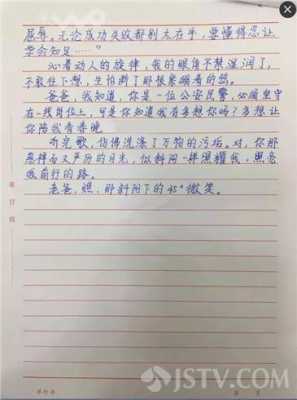 屈辱。无论成功失败都别太在乎，要懂得忍让
学会知足……"
沁着动人的旋律，我的眼角不禁湿润了，
不敢往下想，生怕断了那根紧绷着的弦。
爸爸，我知道，你是一位公安民警，必须坚守
在一线岗位上，可是你知道我有多想你吗？多想让
你陪我看春晚。
听完歌，仿佛洗涤了万物的污垢。对，你那
慈祥而又严厉的目光，似斜阳一样照耀我，照亮
我前行的路。
老爸，瞧，那斜阳下的45°微笑。
JSTV.COM